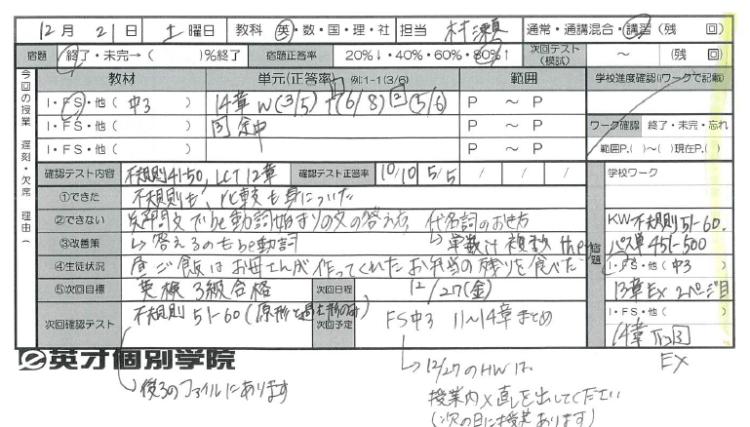 12月 21日 土曜日 教科 英・数・国・理・社 担当 村瀬 通常・通講混合・講習(残 回)
宿題 終了・未完→( )%終了 宿題正答率 20%↓・40%・60%・80%↑ 次回テスト(模試) ～ (残 回)
今回の授業 遅刻・欠席 理由( )
教材 単元(正答率) 例:1-1(3/6) 範囲 学校進度確認(ワークで記載)
I・FS・他( 中3 ) 14章 W(3/5) 1(6/8) 2(5/6) P ～ P
I・FS・他( ) 3 途中 P ～ P ワーク確認 終了・未完・忘れ
I・FS・他( ) P ～ P 範囲P.( )～( )現在P.( )
確認テスト内容 不規則41-50, LCT 12章 確認テスト正答率 10/10 5/5 / / / 学校ワーク
①できた 不規則も、比較も身についた
②できない 疑問文でbe動詞始まりの文の答え方 代名詞のおき方
③改善策 ↳答えるのもbe動詞 ↳単数け 複数 they
④生徒状況 昼ご飯はお母さんが作ってくれたお弁当の残りを食べた
⑤次回目標 英検3級合格 次回日程 12/27(金)
次回確認テスト 不規則 51-60 (原形と過去形のみ) 次回予定 FS中3 11～14章まとめ
宿題
KW不規則51-60.
パス単451-500
I・FS・他( 中3 )
13章EX 2ページ目
I・FS・他( )
14章 3
EX
英才個別学院
↳後ろのファイルにあります
↳12/27のHWは、
授業内×直しを出してください
(次の日に授業あります)